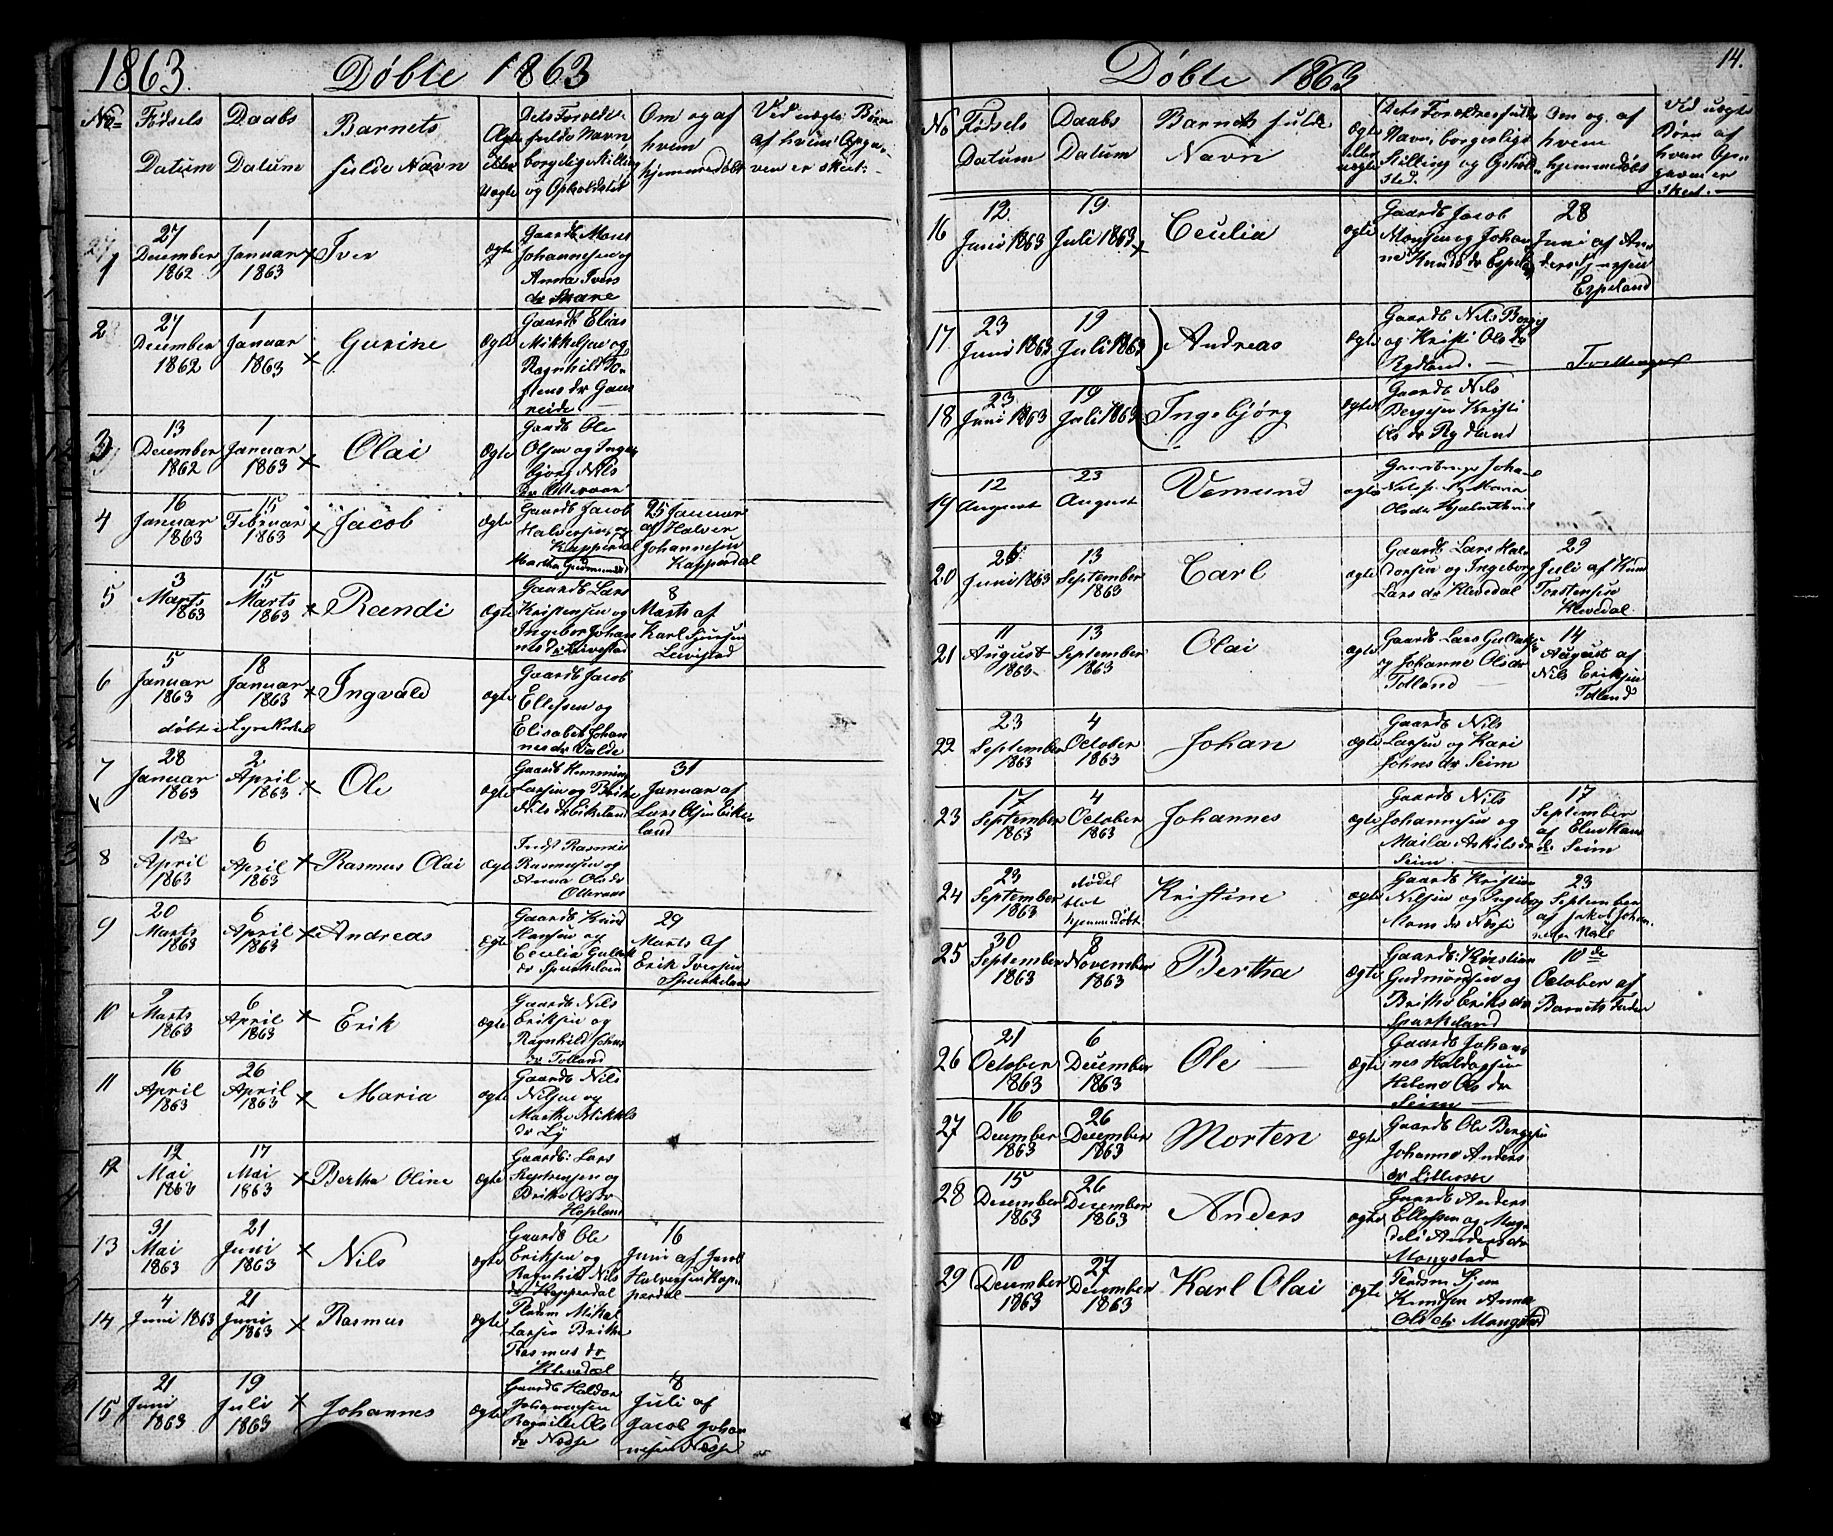 1863.
Døbte 1863
No
Fødsels Datum
Daabs Datum
Barnets fulde Navn
Ægte eller Uægte
Dets Forældres fulde Navn, borgelige Stilling og Opholdsted
Om og af hvem hjemmedøbt
Ved uægte Børn af hvem Opgaven er skeet:
1
27 December 1862
1 Januar 1863
x Iver
ægte
Gaardb Mons
Johannesen og
Anna Ivers
dr
2
27 December 1862
1 Januar 1863
x Gurine
ægte
Gaardb Elias
Mikkelsen og
Ragnhild
dr
3
13 December 1862
1 Januar 1863
x Olai
ægte
Gaardb Ole
Olsen og Inge
bjørg Nils
dr
4
16 Januar 1863
15 Februar 1863
x Jacob
ægte
Gaardb Jacob
Halversen og
Kapperdal
Martha Gudmunds
25 Januar
af Halver
Johannesen
Kapperdal
5
3 Marts 1863
15 Marts 1863
x Randi
ægte
Gaardb Lars
Kristensen og
Ingebor Johan
nes dr Leivestad
8
Marts af
Karl Sjursen
Leivestad
6
5 Januar 1863
18 Januar 1863
x Ingvald
døbt i Lyrekirkel
ægte
Gaardb Jacob
Ellefsen og
Elisabet Johan
nes dr Valde
7
28 Januar 1863
2 April 1863
x Ole
ægte
Gaardb Hemming
Larsen og Brithe
Nils dr Eikeland
31
Januar af
Lars Olsen Eike
land
8
April 1863
6 April 1863
x Rasmus Olai
ægte
Indst Rasmus
Rasmusen og
Anna Ols dr
9
20 Marts 1863
6 April 1863
x Andreas
ægte
Gaardb Knud
Hansen og
Cecilia
dr Spurkeland
29
Marts af
Erik Iversen
Spurkeland
10
9 Marts 1863
6 April 1863
x Erik
ægte
Gaardb Nils
Eriksen og
Ragnhild Johns
dr Tolland
11
16 April 1863
26 April 1863
x Maria
ægte
Gaardb Nils
Nilsen og
Marthe Mikkels
dr
12
12 Mai 1863
17 Mai 1863
x Bertha Oline
ægte
Gaardb: Lars
og
Brithe Ols dr
Hopland
13
31 Mai 1863
21 Juni 1863
x Nils
ægte
Gaardb Ole
Eriksen og
Ragnhild Nils
dr Kapperdal
16
Juni af Jacob
Halversen Kap
perdal
14
4 Juni 1863
21 Juni 1863
x Rasmus
ægte
Pladsm Mikal
Larsen Brithe
Rasmus dr
Klevedal
15
21 Juni 1863
19 Juli 1863
x Johannes
ægte
Gaardb Haldor
Johannesen
Ols
dr Nædse
8
Juli af
Jacob Johan
nesen Nædse
Døbte 1863
14.
No
Fødsels Datum
Daabs Datum
Barnets fulde Navn
Ægte eller uægte
Dets Forældres fulde Navn, borgerlige Stilling og Opholdsted.
Om og af hvem hjemmedøbt
Ved uægte Børn af hvem Opgaven er skeet.
16
12 Juni 1863
19 Juli 1863
Cecilia
ægte
Gaardb Jacob
Monsen og Johan
ne Knuds dr Espeland
28
Juni af An
ders
Espeland
17
23 Juni 1863
19 Juli 1863
Andreas
ægte
Gaardb Nils
og Kristi Ols dr
Rydland.
18
23 Juni 1863
19 Juli 1863
Ingebjørg
ægte
Gaardb Nils
Bergesen Kristi
Ols dr Rydland
19
12 August
23 August
Vemund
ægte
Maria
20
26 Juni 1863
13 September 1863
Carl
ægte
Gaardb Lars Hal
dorsen og Ingeborg
Lars dr Klevedal
29
Juli af Knud
Torstensen
Klevedal
21
11 August 1863
13 September 1863
Olai
ægte
Gaardb Lars
og Johanne Ols dr
Tolland
14
August af
Nils Eriksen
Tolland
22
23 September 1863
4 October 1863
Johan
ægte
Gaardb Nils
Larsen og Kari
Johns dr Seim
23
17 September 1863
4 October 1863
Johannes
ægte
Gaardb Nils
Johannesen og
Askilsdr
Seim
17
September
af
dr Seim
24
23 September 1863
blot hjemmedøbt
Kristine
ægte
Gaardb Kristian
Nilsen og Ingeborg
Mons dr Nædse
23
September
af Jakob Johan
25
30 September 1863
8 November 1863
Bertha
ægte
Gaardb: Kristian
Gudmundsen og
Brithe Eriks dr
Spurkeland
10de
October af
Barnets Fader
26
21 October 1863
6 December 1863
Ole
ægte
Gaardb Johan
nes
Helene Ols dr
Seim
27
16 December 1863
26 December 1863
Morten
ægte
Gaardb Ole Bergesen
Johanne Anders
dr Lilleosse
28
15 Desember 1863
26 Desember 1863
Anders
ægte
Gaardb Anders
Ellefsen og Mag
deli Anders dr
Mongstad
29
10 December 1863
27 December 1863
Karl Olai
ægte
Pladsm
Knudsen Anna
Ols dr Mongstad